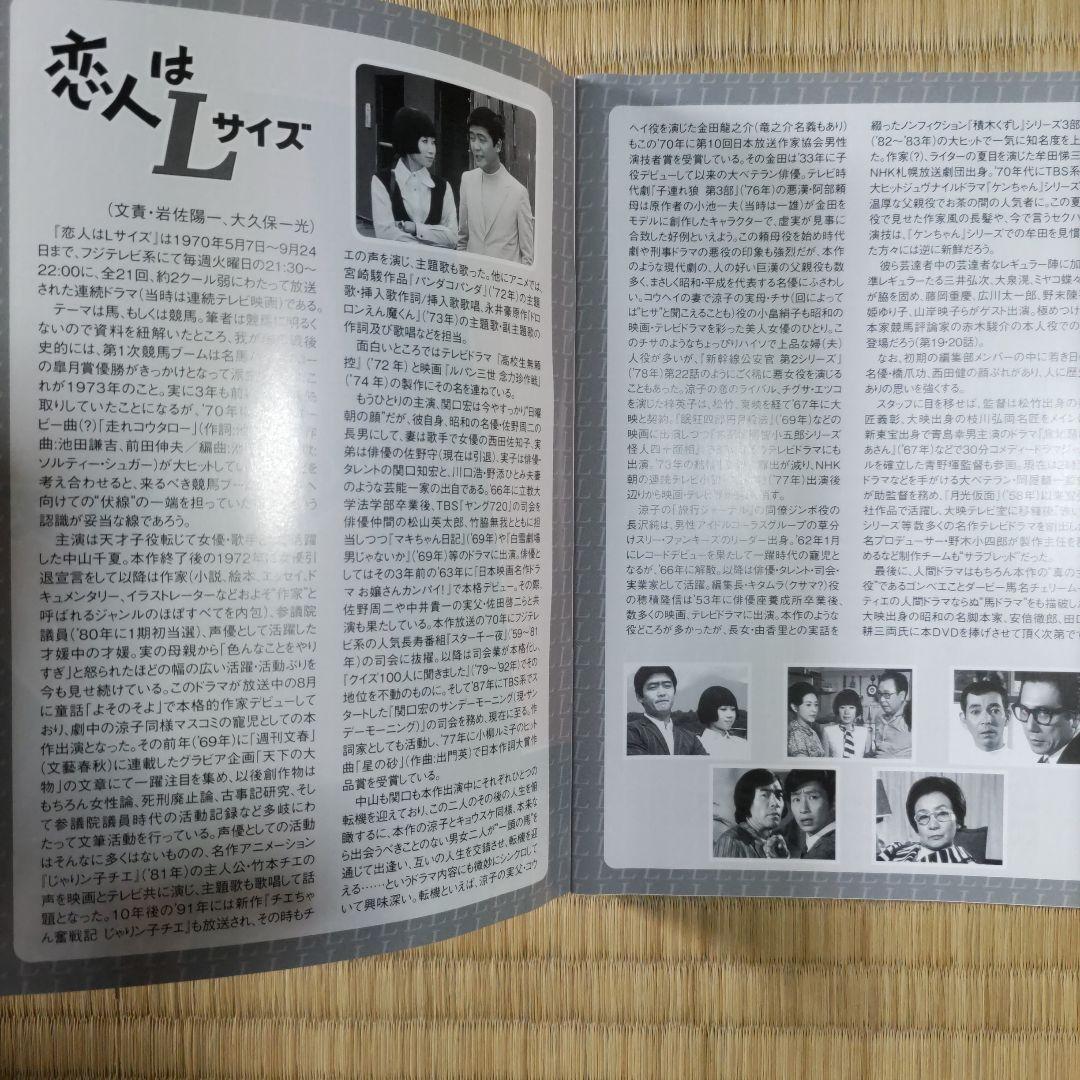 恋人は
Lサイズ
(文責・岩佐陽一、大久保一光)
『恋人はLサイズ』は1970年5月7日〜9月24
日まで、フジテレビ系にて毎週火曜日の21:30〜
22:00に、全21回、約2クール弱にわたって放送
された連続ドラマ(当時は連続テレビ映画)である。
テーマは馬、もしくは競馬。筆者は競馬に明るく
ないので資料を紐解いたところ、我が国の戦後
史的には、第1次競馬ブームは名馬
の皐月賞優勝がきっかけとなって
れが1973年のこと。実に3年も前
取りしていたことになるが、'70年
ビー曲(?)『走れコウタロー』(作詞:
曲:池田謙吉、前田伸夫／編曲:
ソルティー・シュガー)が大ヒットしてい を
考え合わせると、来るべき競馬ブー へ
向けての“伏線”の一端を担ってい う
認識が妥当な線であろう。
主演は天才子役転じて女優・歌手 活躍
した中山千夏。本作終了後の1972年に女優引
退宣言をして以降は作家(小説、絵本、エッセイ、ド
キュメンタリー、イラストレーターなどおよそ“作家”と
呼ばれるジャンルのほぼすべてを内包)、参議院
議員('80年に1期初当選)、声優として活躍した
才媛中の才媛。実の母親から「色んなことをやり
すぎ」と怒られたほどの幅の広い活躍・活動ぶりを
今も見せ続けている。このドラマが放送中の8月
に童話『よそのそよ』で本格的作家デビューして
おり、劇中の涼子同様マスコミの寵児としての本
作出演となった。その前年('69年)に『週刊文春』
(文藝春秋)に連載したグラビア企画「天下の大
物」の文章にて一躍注目を集め、以後創作物は
もちろん女性論、死刑廃止論、古事記研究、そし
て参議院議員時代の活動記録など多岐にわ
たって文筆活動を行っている。声優としての活動
はそんなに多くはないものの、名作アニメーション
『じゃりン子チエ』('81年)の主人公・竹本チエの
声を映画とテレビ共に演じ、主題歌も歌唱して話
題となった。10年後の'91年には新作『チエちゃ
ん奮戦記 じゃりン子チエ』も放送され、その時もチ
エの声を演じ、主題歌も歌った。他にアニメでは、
宮崎駿作品『パンダコパンダ』('72年)の主題
歌・挿入歌作詞／挿入歌歌唱、永井豪原作『ド
ロロンえん魔くん』('73年)の主題歌・副主題歌の
作詞及び歌唱などを担当。
面白いところではテレビドラマ『高校生無頼
控』('72年)と映画『ルパン三世 念力珍作戦』
('74年)の製作にその名を連ねている。
もうひとりの主演、関口宏は今やすっかり“日曜
朝の顔”だが、彼自身、昭和の名優・佐野周二の
長男にして、妻は歌手で女優の西田佐知子、実
弟は俳優の佐野守(現在は引退)、実子は俳優・
タレントの関口知宏と、川口浩・野添ひとみ夫妻
のような芸能一家の出自である。'66年に立教大
学法学部卒業後、TBS『ヤング720』の司会を
俳優仲間の松山英太郎、竹脇無我とともに担
当しつつ『マキちゃん日記』('69年)や『白雪劇場
男じゃないか』('69年)等のドラマに出演。俳優と
してはその3年前の'63年に『日本映画名作ドラ
マ お嬢さんカンパイ!』で本格デビュー。その際、
佐野周二や中井貴一の実父・佐田啓二らと共
演も果たしている。本作放送の'70年にフジテレ
ビ系の人気長寿番組『スター千一夜』('59〜81
年)の司会に抜擢。以降は司会業が本格化し、
『クイズ100人に聞きました』('79〜'92年)でその
地位を不動のものに。そして'87年にTBS系でス
タートした『関口宏のサンデーモーニング(現・サン
デーモーニング)』の司会を務め、現在に至る。作
詞家としても活動し、'77年に小柳ルミ子のヒット
曲「星の砂」(作曲:出門英)で日本作詞大賞作
品賞を受賞している。
中山も関口も本作出演中にそれぞれひとつの
転機を迎えており、この二人のその後の人生を俯
瞰するに、本作の涼子とキョウスケ同様、本来な
ら出会うべきことのない男女二人が“一頭の馬”を
通じて出逢い、互いの人生を交錯させ、転機を迎
える……というドラマ内容にも微妙にシンクロして
いて興味深い。転機といえば、涼子の実父・コウ
ヘイ役を演じた金田龍之介(竜之介名義もあり)
もこの'70年に第10回日本放送作家協会男性
演技者賞を受賞している。その金田は'33年に子
役デビューして以来の大ベテラン俳優。テレビ時
代劇『子連れ狼 第3部』('76年)の悪漢・阿部頼
母は原作者の小池一夫(当時は一雄)が金田を
モデルに創作したキャラクターで、虚実が見事に
合致した好例といえよう。この頼母役を始め時代
劇や刑事ドラマの悪役の印象も強烈だが、本作
のような現代劇の、人の好い巨漢の父親役も数
多く、まさしく昭和・平成を代表する名優にふさわし
い。コウヘイの妻で涼子の実母・チサ(回によって
は“ヒサ”と聞こえることも)役の小畠絹子も昭和の
映画・テレビドラマを彩った美人女優のひとり。こ
のチサのようなちょっぴりハイソで上品な婦(夫)
人役が多いが、『新幹線公安官 第2シリーズ』
('78年)第22話のようにごく稀に悪女役を演じる
こともあった。涼子の恋のライバル、チグサ・エツコ
を演じた梓英子は、松竹、東映を経て'67年に大
映と契約、『眠狂四郎円月殺法』('69年)などの
映画に出演しつつ 智小五郎シリーズ
怪人四十面相』で テレビドラマにも
出演。'73年の結婚 露出が減り、NHK
朝の連続テレビ小 ('77年)出演後
辺りから映画・テレビ 消す。
涼子の『旅行ジャーナル』の同僚ジンボ役の
長沢純は、男性アイドルコーラスグループの草分
けスリー・ファンキーズのリーダー出身。'62年1月
にレコードデビューを果たして一躍時代の寵児と
なるが、'66年に解散。以降は俳優・タレント・司会・
実業家として活躍。編集長・キタムラ(クサマ?)役
の穂積隆信は'53年に俳優座養成所卒業後、
数多くの映画、テレビドラマに出演。本作のような
役どころが多かったが、長女・由香里との実話を
綴ったノンフィクション『積木くずし』シリーズ3部
('82〜'83年)の大ヒットで一気に知名度を上
た。作家(?)、ライターの夏目を演じた牟田悌三
NHK札幌放送劇団出身。'70年代にTBS系
大ヒットジュヴナイルドラマ『ケンちゃん』シリーズ
温厚な父親役でお茶の間の人気者に。この夏
役で見せた作家風の長髪や、今で言うセクハ
演技は、『ケンちゃん』シリーズでの牟田を見慣
た方々には逆に新鮮だろう。
彼ら芸達者中の芸達者なレギュラー陣に加
準レギュラーたる三井弘次、大泉滉、ミヤコ蝶々
が脇を固め、藤岡重慶、広川太一郎、野末陳
姫ゆり子、山岸映子らがゲスト出演。極めつけ
本家競馬評論家の赤木駿介の本人役での
登場だろう(第19・20話)。
なお、初期の編集部メンバーの中に若き日の
名優・橋爪功、西田健の顔ぶれがあり、人に歴史
ありの思いを強くする。
スタッフに目を移せば、監督は松竹出身の
匠義彰、大映出身の枝川弘両名匠をメインに
新東宝出身で青島幸男主演のドラマ
あさん』('67年)などで30分コメディードラマ
ルを確立した青野暉監督も参画。現在は2時
ドラマなどを手がける大ベテラン・岡屋龍一
が助監督を務め、『月光仮面』('58年)以来
社作品で活躍し、大映テレビ室に移籍後
シリーズ等数多くの名作テレビドラマを創出し
名プロデューサー・野木小四郎が製作主任を
めるなど制作チームも“サラブレッド”だった。
最後に、人間ドラマはもちろん本作の“真の主
役”であるゴンベエことダービー馬名チェリーム
ティエの人間ドラマならぬ“馬ドラマ”をも描破し
大映出身の昭和の名脚本家、安倍徹郎、田口
耕三両氏に本DVDを捧げさせて頂く次第で